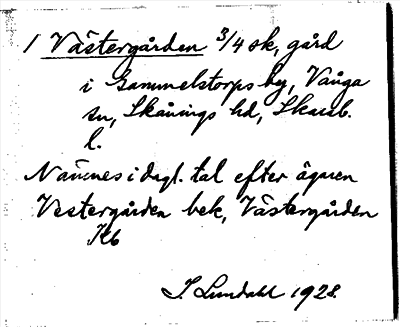 1 Västergården 3/4 sk, gård
i Gammelstorps by, Vånga
sn, Skånings hd, Skarab.
l.
Namnes i dagl. tal efter ägaren
Vestergården bek, Västergården
Kb
I. Lundahl 1928.